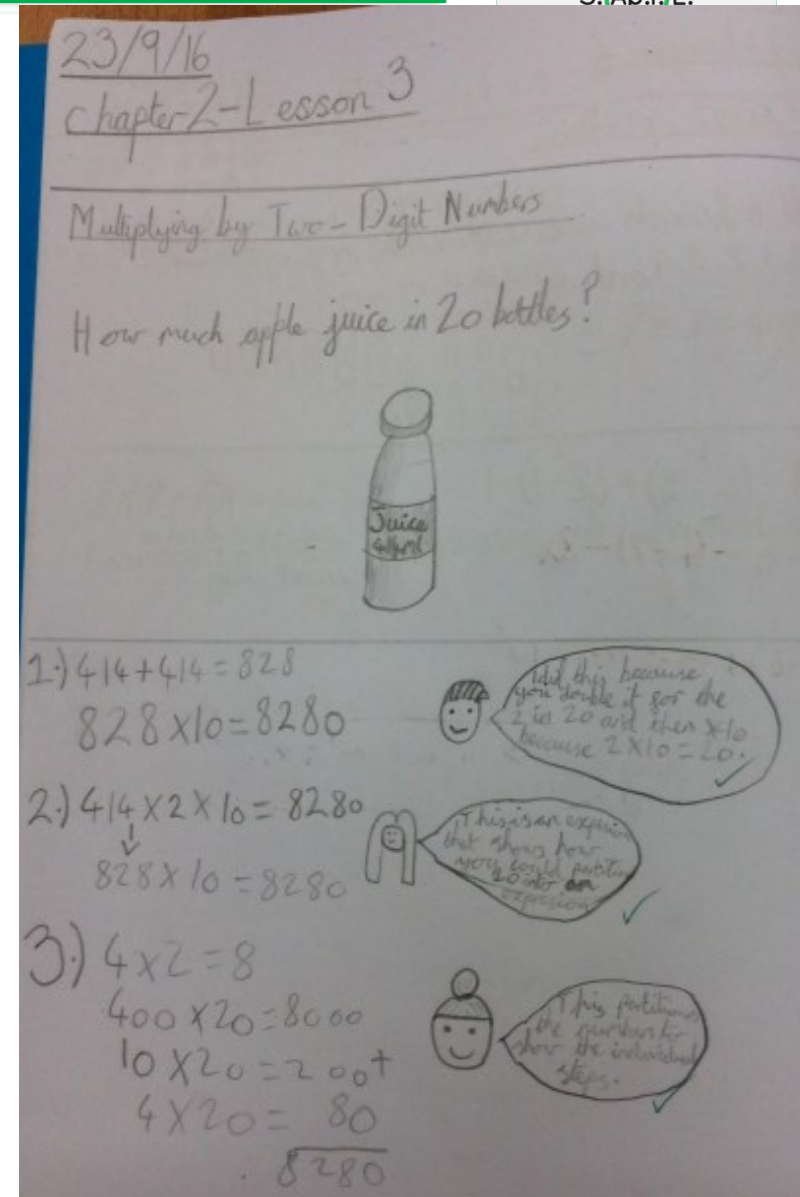 23/9/16
Chapter 2-Lesson 3
Multiplying by Two-Digit Numbers
How much apple juice in 20 bottles?
Juice
414ml
1.) 414+414=828
828x10=8280
I did this because
you double it for the
2 in 20 and then x10
because 2x10=20.
2.) 414x2x10=8280
828x10=8280
This is an
that shows how
you could partition
20 into an
expression
3.) 4x2=8
400x20=8000
10x20=200+
4x20=80
8280
This partitions
the numbers to
show the individual
steps.